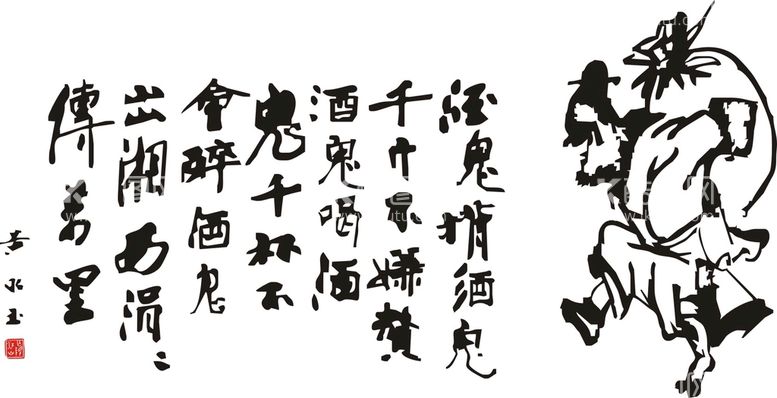 酒鬼揹酒鬼
千斤不嫌贅
酒鬼喝酒
鬼千杯不
會醉酒鬼
出湘西涓〻
傳萬里
黄永玉